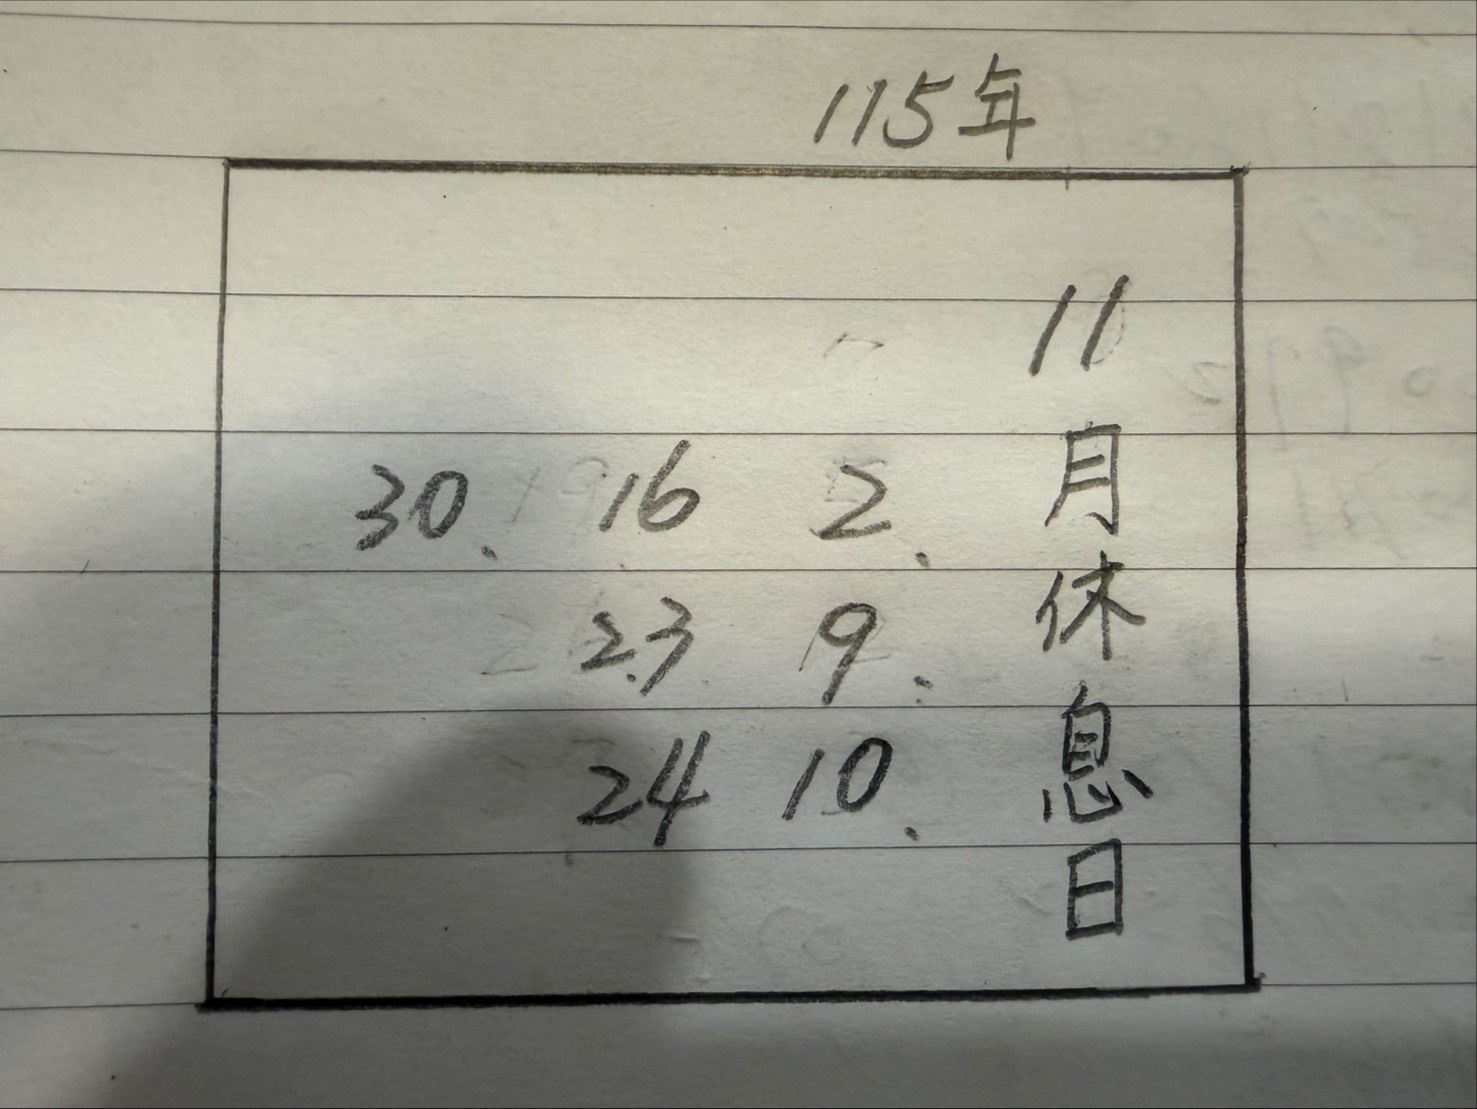 115年
11月休息日
2. 9. 10.
16 23 24
30.